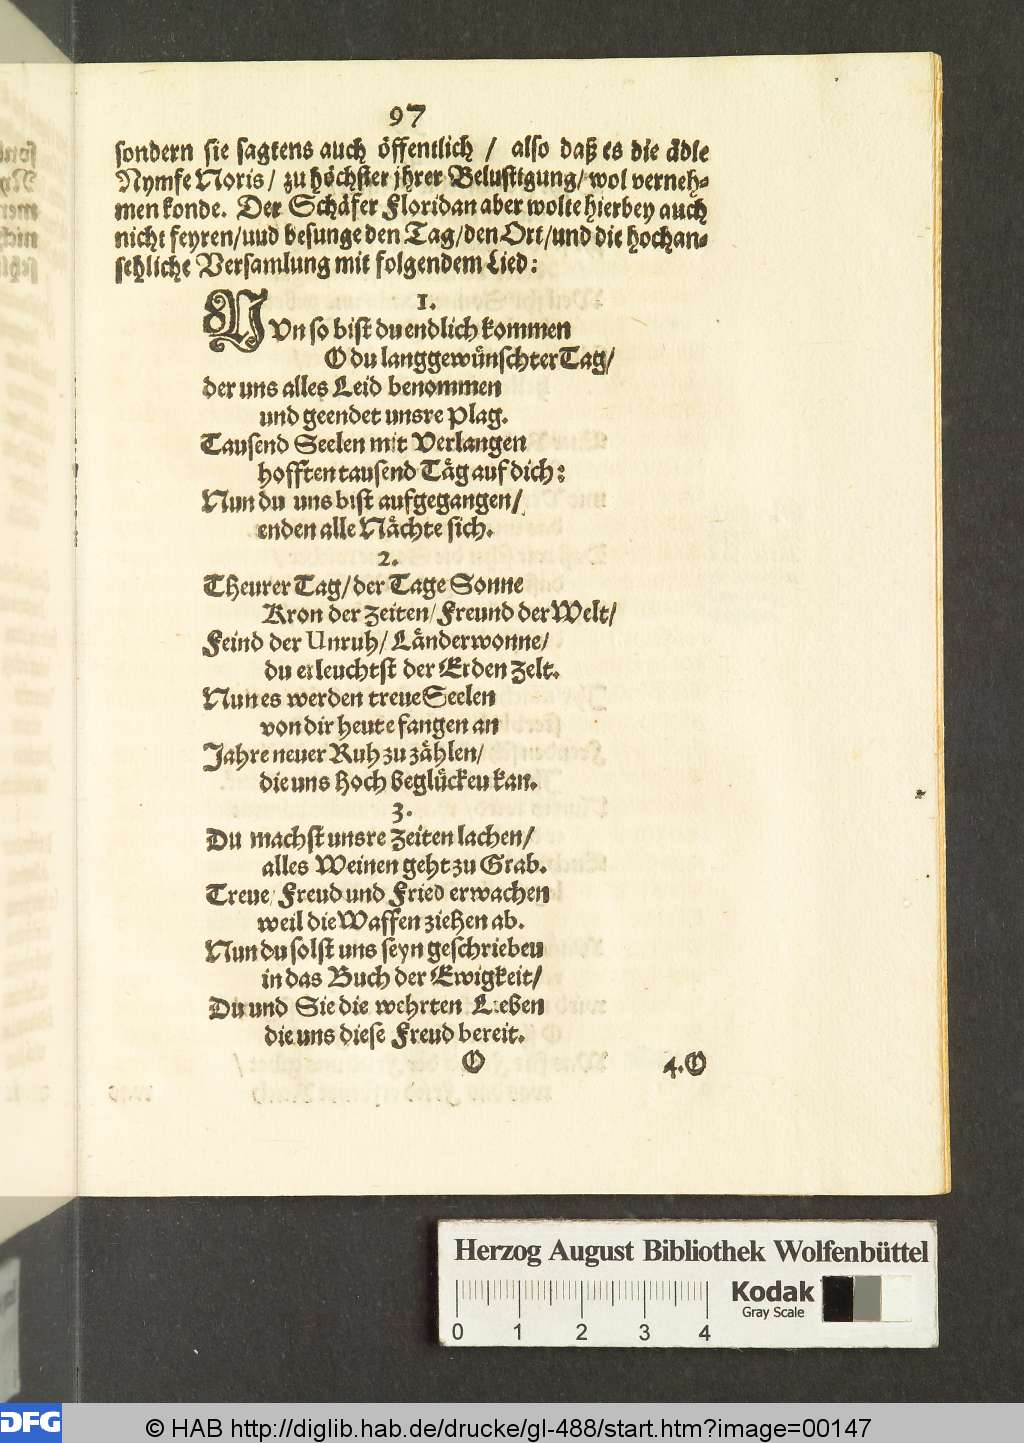 97
sondern sie sagtens auch öffentlich / also daß es die ädle
Nymfe Noris / zu höchster jhrer Belustigung / wol verneh-
men konde. Der Schäfer Floridan aber wolte hierbey auch
nicht feyren / uud besunge den Tag / den Ort / und die hochan-
sehliche Versamlung mit folgendem Lied:
1.
NUn so bist du endlich kommen
O du langgewünschter Tag /
der uns alles Leid benommen
und geendet unsre Plag.
Tausend Seelen mit Verlangen
hofften tausend Täg auf dich:
Nun du uns bist aufgegangen /
enden alle Nächte sich.
2.
THeurer Tag / der Tage Sonne
Kron der Zeiten / Freund der Welt /
Feind der Unruh / Länderwonne /
du erleuchtst der Erden Zelt.
Nun es werden treue Seelen
von dir heute fangen an
Jahre neuer Ruh zu zählen /
die uns hoch beglückeu kan.
3.
Du machst unsre Zeiten lachen /
alles Weinen geht zu Grab.
Treue / Freud und Fried erwachen
weil die Waffen ziehen ab.
Nun du solst uns seyn geschrieben
in das Buch der Ewigkeit /
Du und Sie die wehrten Lieben
die uns diese Freud bereit.
O 4. O
Herzog August Bibliothek Wolfenbüttel
Kodak
Gray Scale
0 1 2 3 4
DFG
© HAB http://diglib.hab.de/drucke/gl-488/start.htm?image=00147